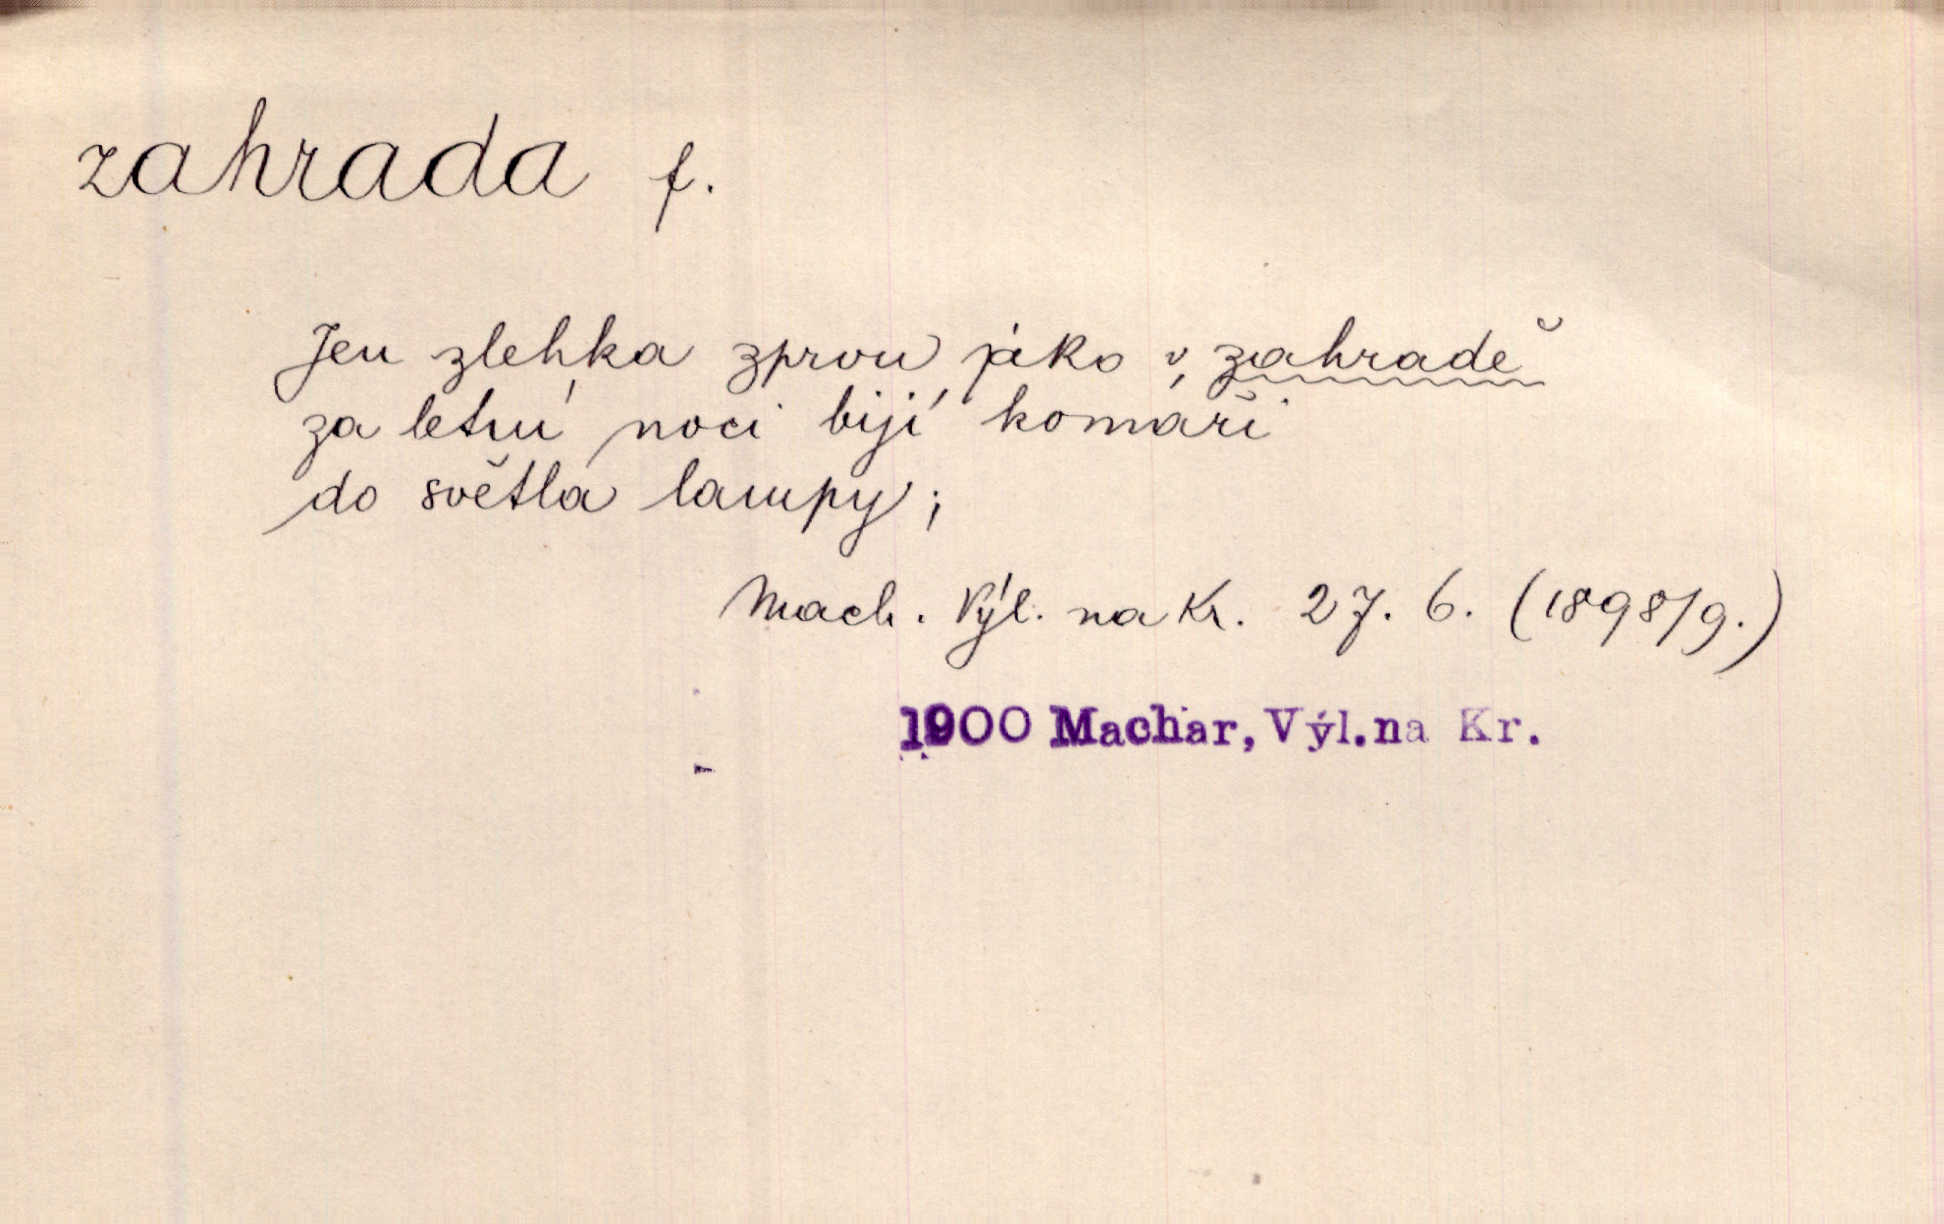 zahrada f.
Jen zlehka zprvu jako v zahradě
za letní noci bijí komáři
do světla lampy;
Mach. Výl. na Kr. 27. 6. (1898/9.)
1900 Machar, Výl.na Kr.